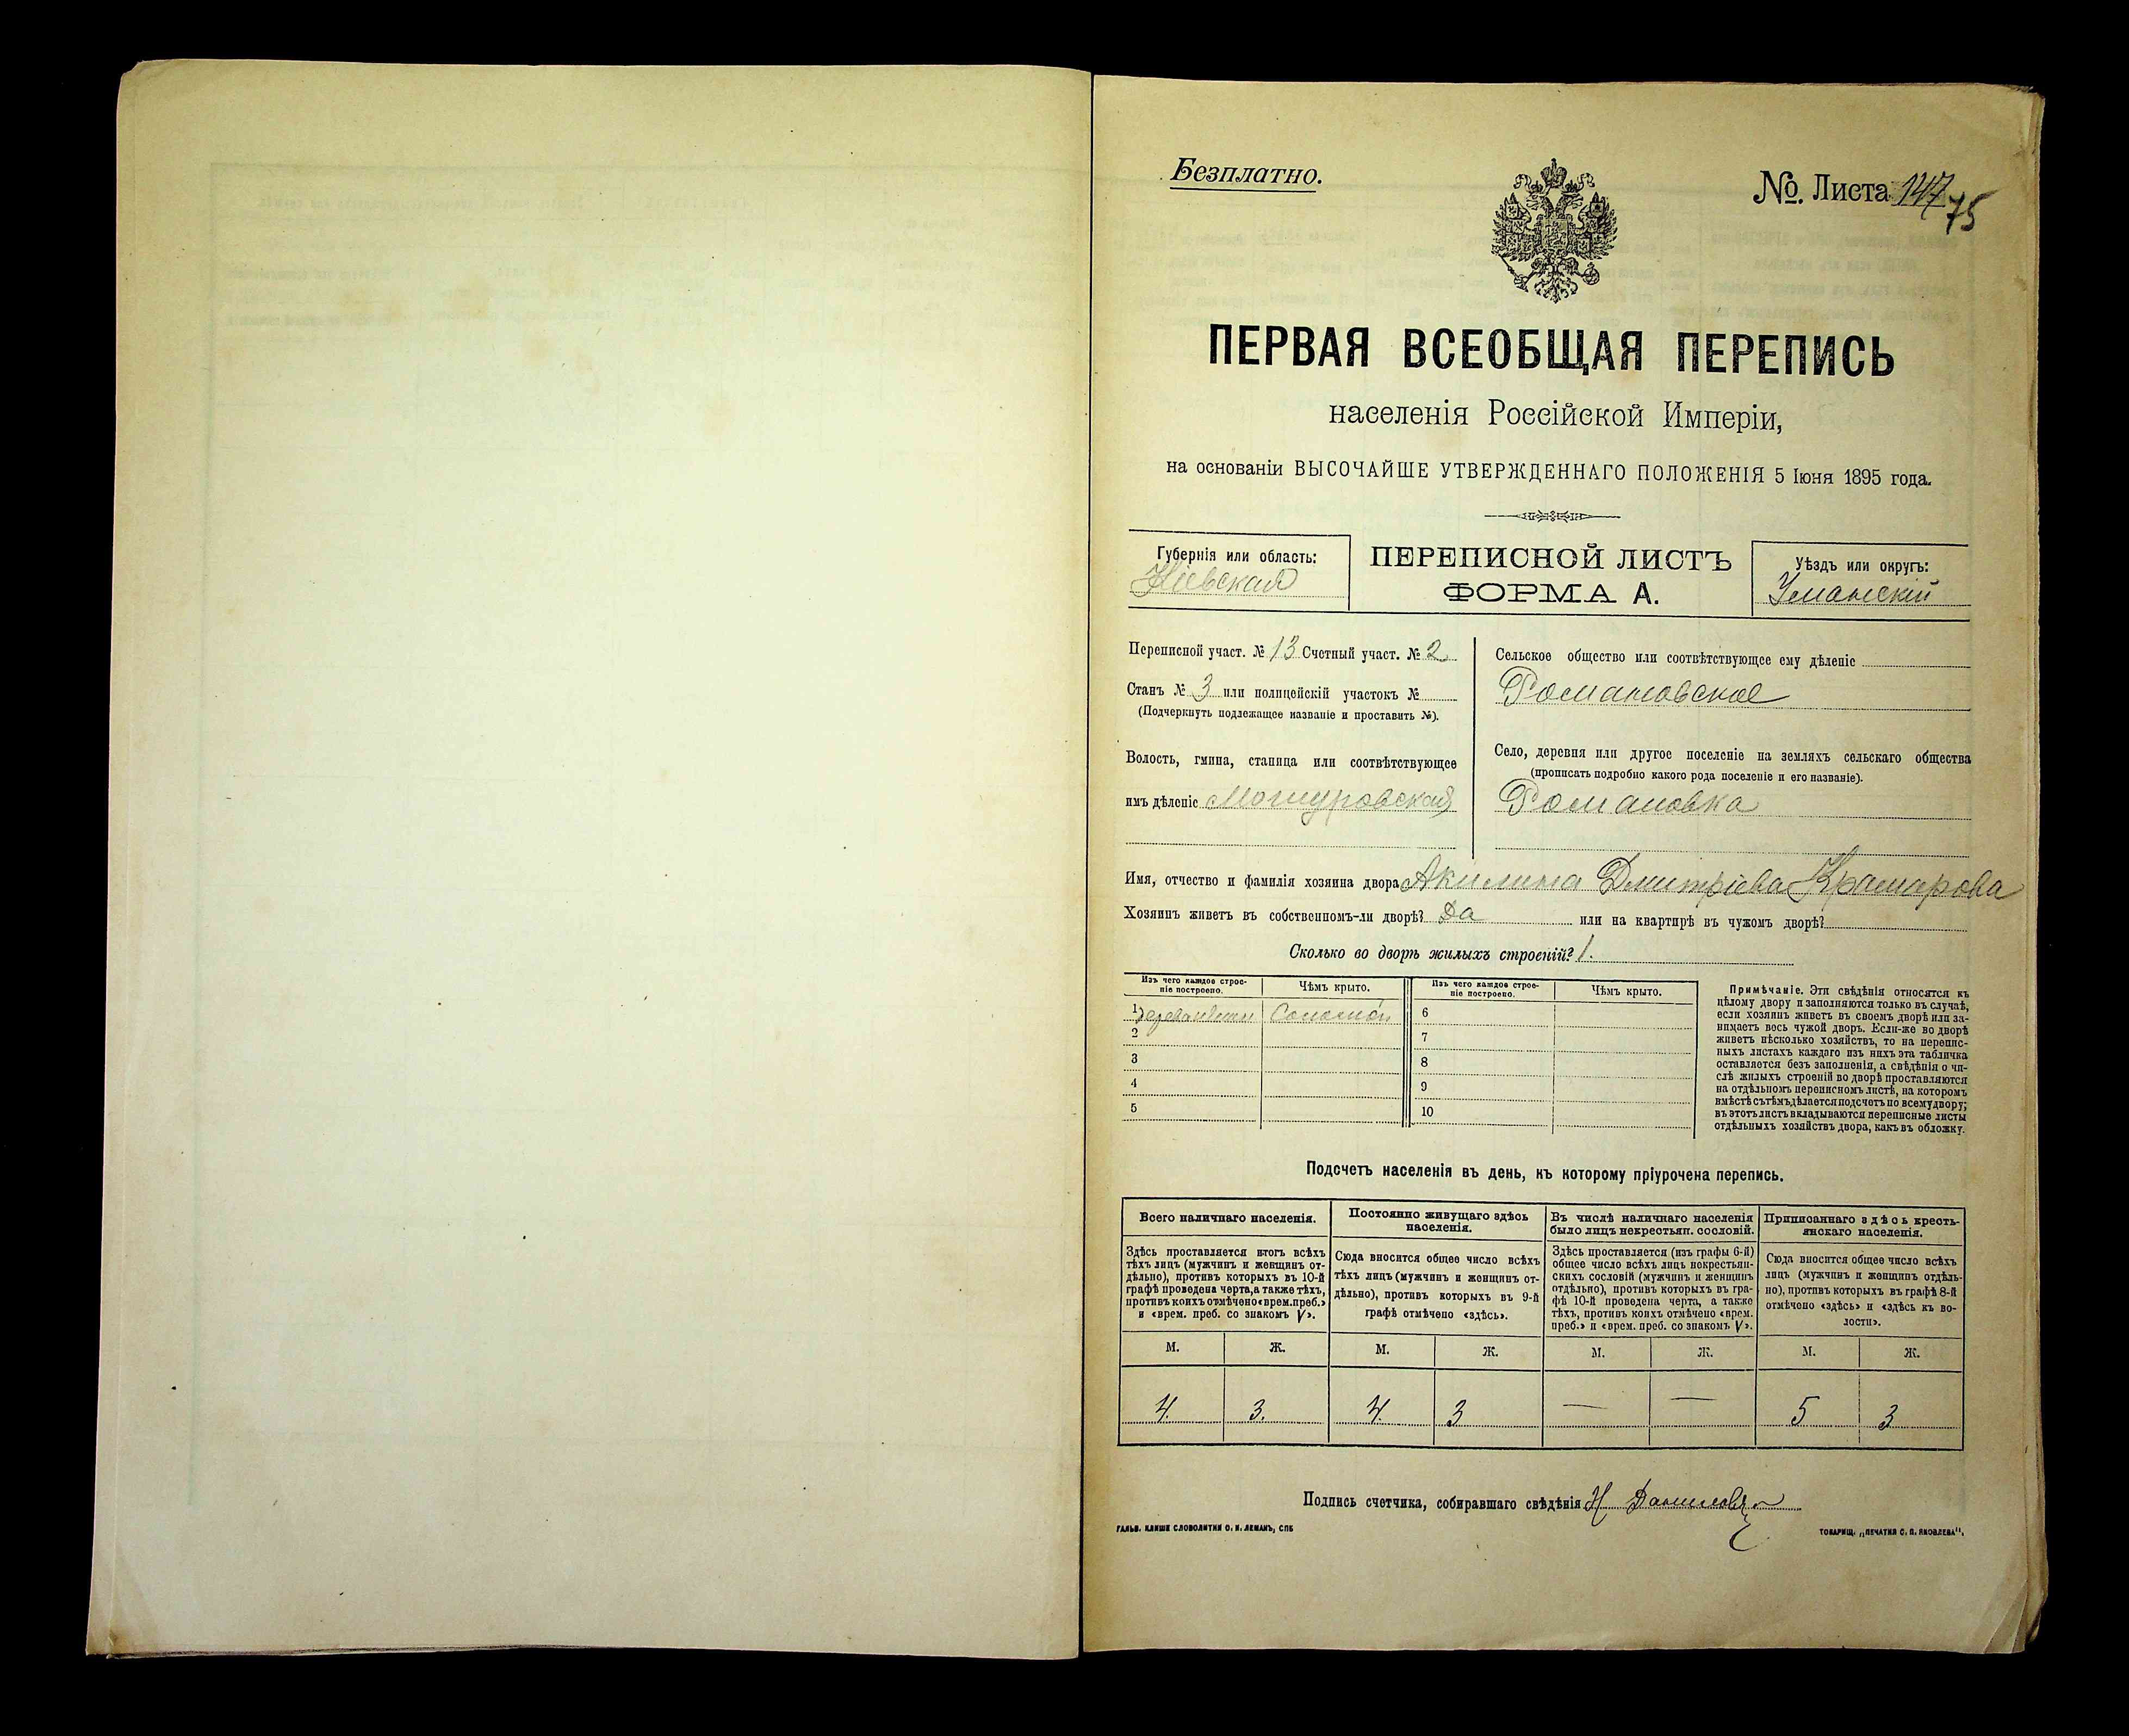 Безплатно.
№. Листа 147
75
ПЕРВАЯ ВСЕОБЩАЯ ПЕРЕПИСЬ
населенія Россійской Имперіи,
на основаніи ВЫСОЧАЙШЕ УТВЕРЖДЕННАГО ПОЛОЖЕНІЯ 5 Іюня 1895 года.
Губернія или область:
Кіевская
ПЕРЕПИСНОЙ ЛИСТЪ
ФОРМА А.
Уѣздъ или округъ:
Уманскій
Переписной участ. № 13 Счетный участ. № 2
Станъ № 3 или полицейскій участокъ №
(Подчеркнуть подлежащее названіе и проставить №).
Волость, гмина, станица или соотвѣтствующее
имъ дѣленіе Мошуровская
Сельское общество или соотвѣтствующее ему дѣленіе
Романовское
Село, деревня или другое поселеніе на земляхъ сельскаго общества
(прописать подробно какого рода поселеніе и его названіе).
Романовка
Имя, отчество и фамилія хозяина двора Акилина Дмитріева Крамарова
Хозяинъ живетъ въ собственномъ-ли дворѣ? Да или на квартирѣ въ чужомъ дворѣ?
Сколько во дворѣ жилыхъ строеній? 1.
Изъ чего каждое строе-
ніе построено.
Чѣмъ крыто.
Изъ чего каждое строе-
ніе построено.
Чѣмъ крыто.
1 Соломой
2
3
4
5
6
7
8
9
10
Примѣчаніе. Эти свѣдѣнія относятся къ
цѣлому двору и заполняются только въ случаѣ,
если хозяинъ живетъ въ своемъ дворѣ или за-
нимаетъ весь чужой дворъ. Если-же во дворѣ
живетъ нѣсколько хозяйствъ, то на перепис-
ныхъ листахъ каждаго изъ нихъ эта табличка
оставляется безъ заполненія, а свѣдѣнія о чи-
слѣ жилыхъ строеній во дворѣ проставляются
на отдѣльномъ переписномъ листѣ, на которомъ
вмѣстѣ съ тѣмъ дѣлается подсчетъ по всему двору;
въ этотъ листъ вкладываются переписные листы
отдѣльныхъ хозяйствъ двора, какъ въ обложку.
Подсчетъ населенія въ день, къ которому пріурочена перепись.
Всего наличнаго населенія.
Здѣсь проставляется итогъ всѣхъ
тѣхъ лицъ (мужчинъ и женщинъ от-
дѣльно), противъ которыхъ въ 10-й
графѣ проведена черта, а также тѣхъ,
противъ коихъ отмѣчено «врем. преб.»
и «врем. преб. со знакомъ V».
Постоянно живущаго здѣсь
населенія.
Сюда вносится общее число всѣхъ
тѣхъ лицъ (мужчинъ и женщинъ от-
дѣльно), противъ которыхъ въ 9-й
графѣ отмѣчено «здѣсь».
Въ числѣ наличнаго населенія
было лицъ некрестьян. сословій.
Здѣсь проставляется (изъ графы 6-й)
общее число всѣхъ лицъ некрестьян-
скихъ сословій (мужчинъ и женщинъ
отдѣльно), противъ которыхъ въ гра-
фѣ 10-й проведена черта, а также
тѣхъ, противъ коихъ отмѣчено «врем.
преб.» и «врем. преб. со знакомъ V».
Приписаннаго здѣсь кресть-
янскаго населенія.
Сюда вносится общее число всѣхъ
лицъ (мужчинъ и женщинъ отдѣль-
но), противъ которыхъ въ графѣ 8-й
отмѣчено «здѣсь» и «здѣсь къ во-
лости».
М. Ж. М. Ж. М. Ж. М. Ж.
4. 3. 4. 3 — — 5 3
Подпись счетчика, собиравшаго свѣдѣнія
ГАЛЬВ. КЛИШЕ СЛОВОЛИТНИ О. И. ЛЕМАНЪ, СПБ
ТОВАРИЩ. „ПЕЧАТНЯ С. П. ЯКОВЛЕВА“.